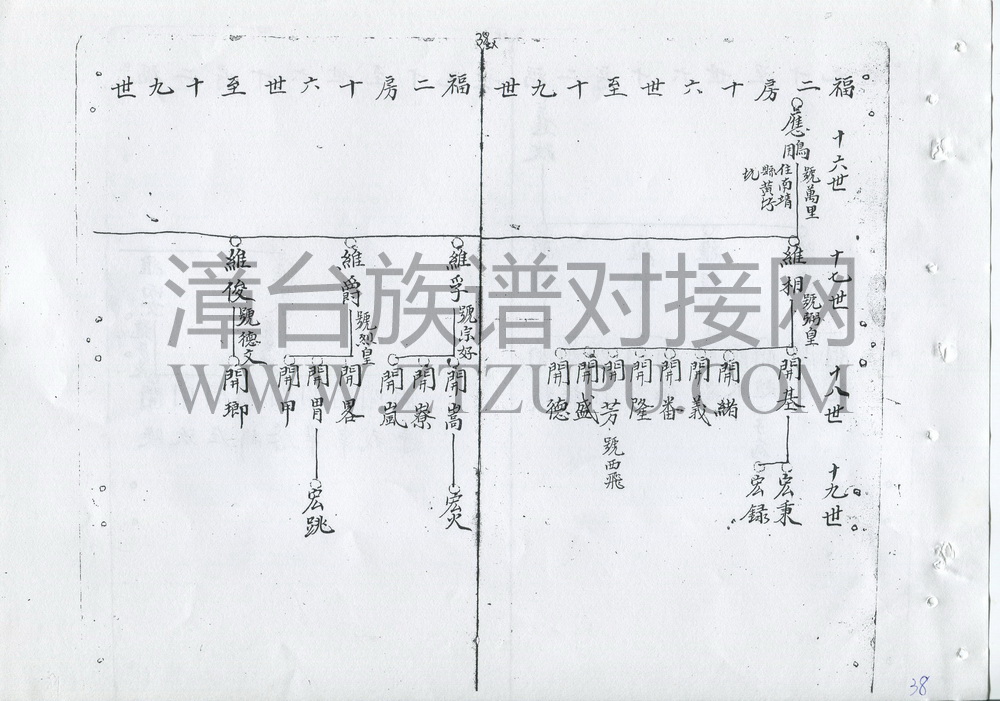 福二房十六世至十九世
十六世
應鵬
號萬里
住南靖
縣黃
坑
十七世
維相
號弼皇
十八世
開基
開緒
開義
開番
開隆
開芳
號西飛
開盛
開德
十九世
宏秉
宏録
福二房十六世至十九世
維孚
號宗好
維爵
號烈皇
維俊
號德文
開嵩
開寮
開嵐
開畧
開胃
開甲
開瑯
宏火
宏跳
漳台族谱对接网
WWW.ZTZUPU.COM
38